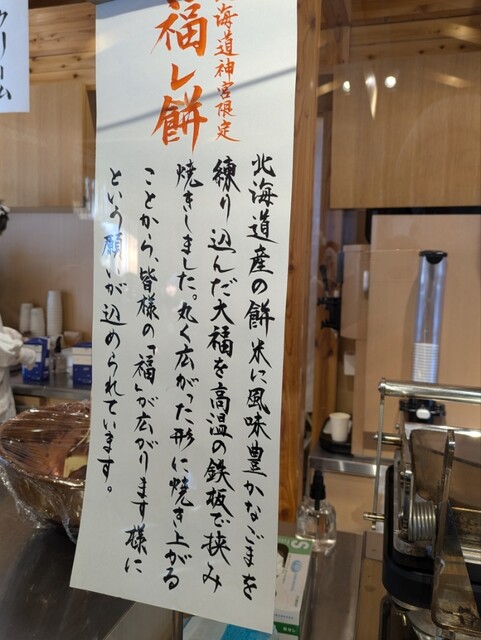 海道神宮限定
福レ餅
北海道産の餅米に風味豊かなごまを
練り込んだ大福を高温の鉄板で挟み
焼きしました。丸く広がった形に焼き上がる
ことから、皆様の「福」が広がります様に
という願いが込められています。
クリーム